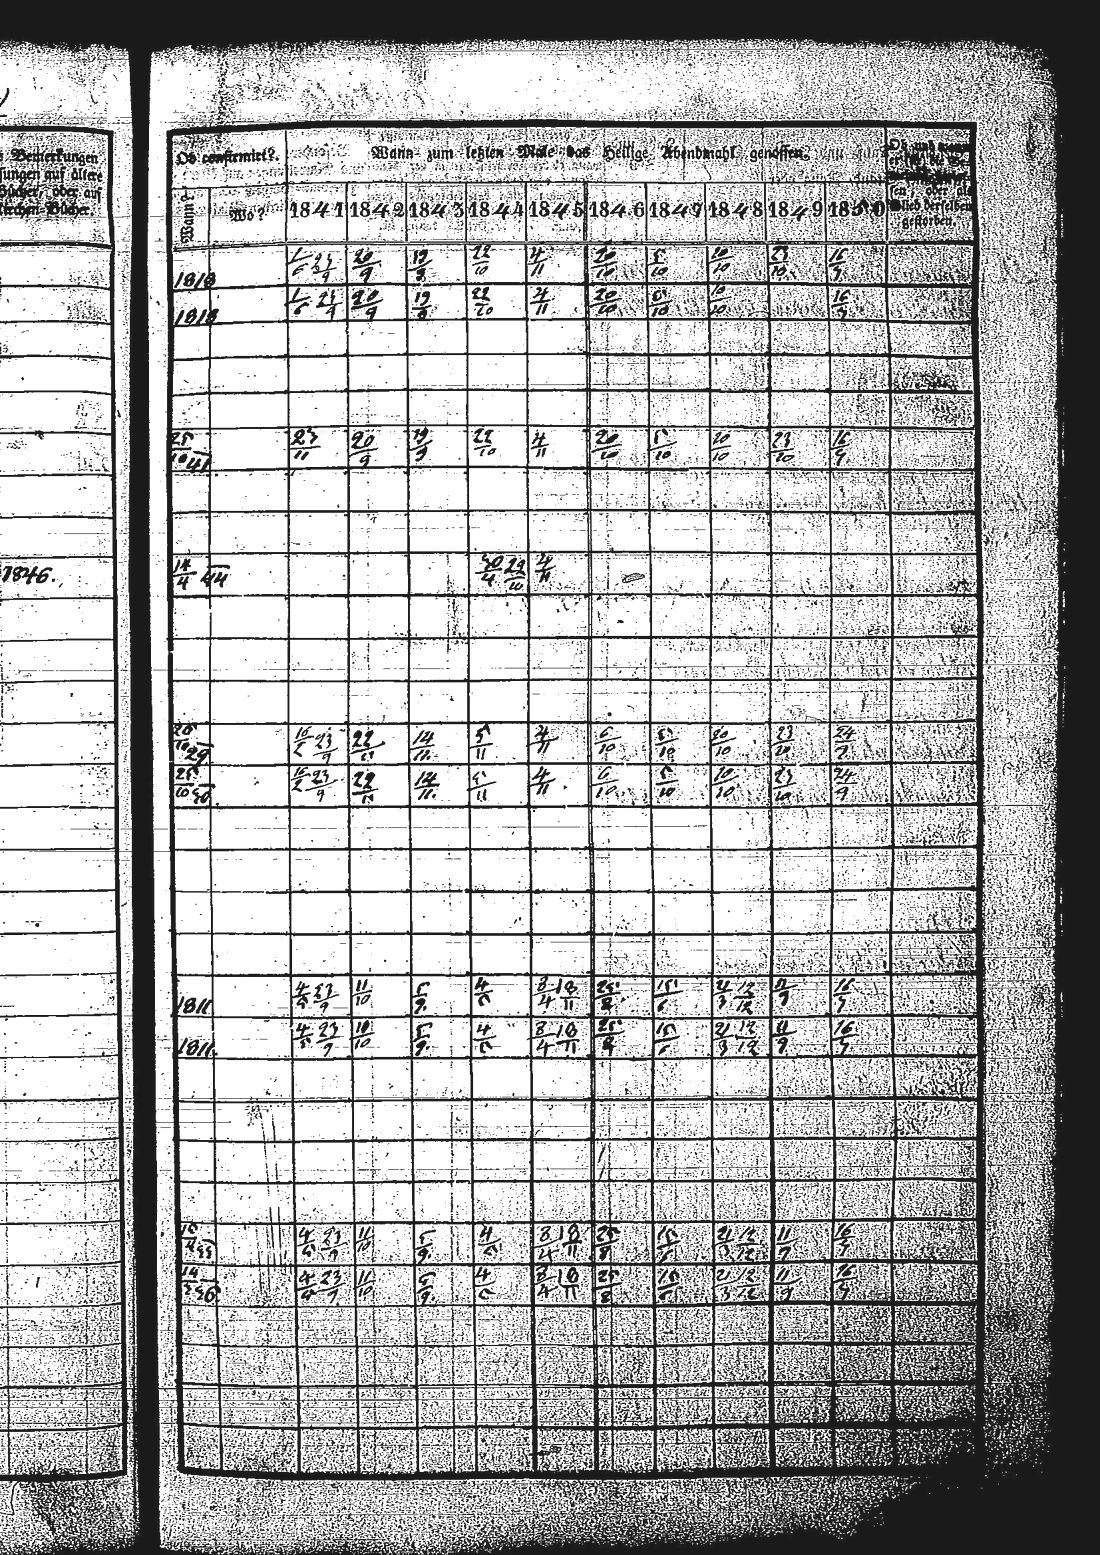 Bemerkungen
sungen auf ältere
Bücher, oder auf
Kirchen-Bücher.
1846.
Ob confirmirt?.
Wann zum letzten Male das Heilige Abendmahl genossen.
Ob und wann
sen, oder als
Glied derselben
gestorben.
Wann?
Wo?
1841 1842 1843 1844 1845 1846 1847 1848 1849 1850
1818 1/6 23/9 20/9 19/9 22/10 4/11 20/10 5/10 10/10 23/10 16/9
1818 1/6 23/9 20/9 19/9 22/10 4/11 20/10 5/10 10/10 16/9
25/10 41 23/11 20/9 19/9 22/10 4/11 20/10 5/10 10/10 23/10 16/9
14/4 44 30/4 22/10 4/11
26/10 29 23/9 22 14/11 5/11 4/11 6/10 5/10 10/10 23/10 24/9
25/10 30 23/9 22 14/11 5/11 4/11 6/10 5/10 10/10 23/10 24/9
1811. 4/5 23/9 11/10 5/9 4/5 8/4 18/11 25/8 15/6 21/3 12/12 11/9 16/9
1811. 4/5 23/9 11/10 5/9 4/5 8/4 18/11 25/8 15/6 21/3 12/12 11/9 16/9
4/5 23/9 11/10 5/9 4/5 8/4 18/11 25/8 15/6 21/3 12/12 11/9 16/9
36 4/5 23/9 11/10 5/9 4/5 8/4 18/11 25/8 15/6 21/3 12/12 11/9 16/9